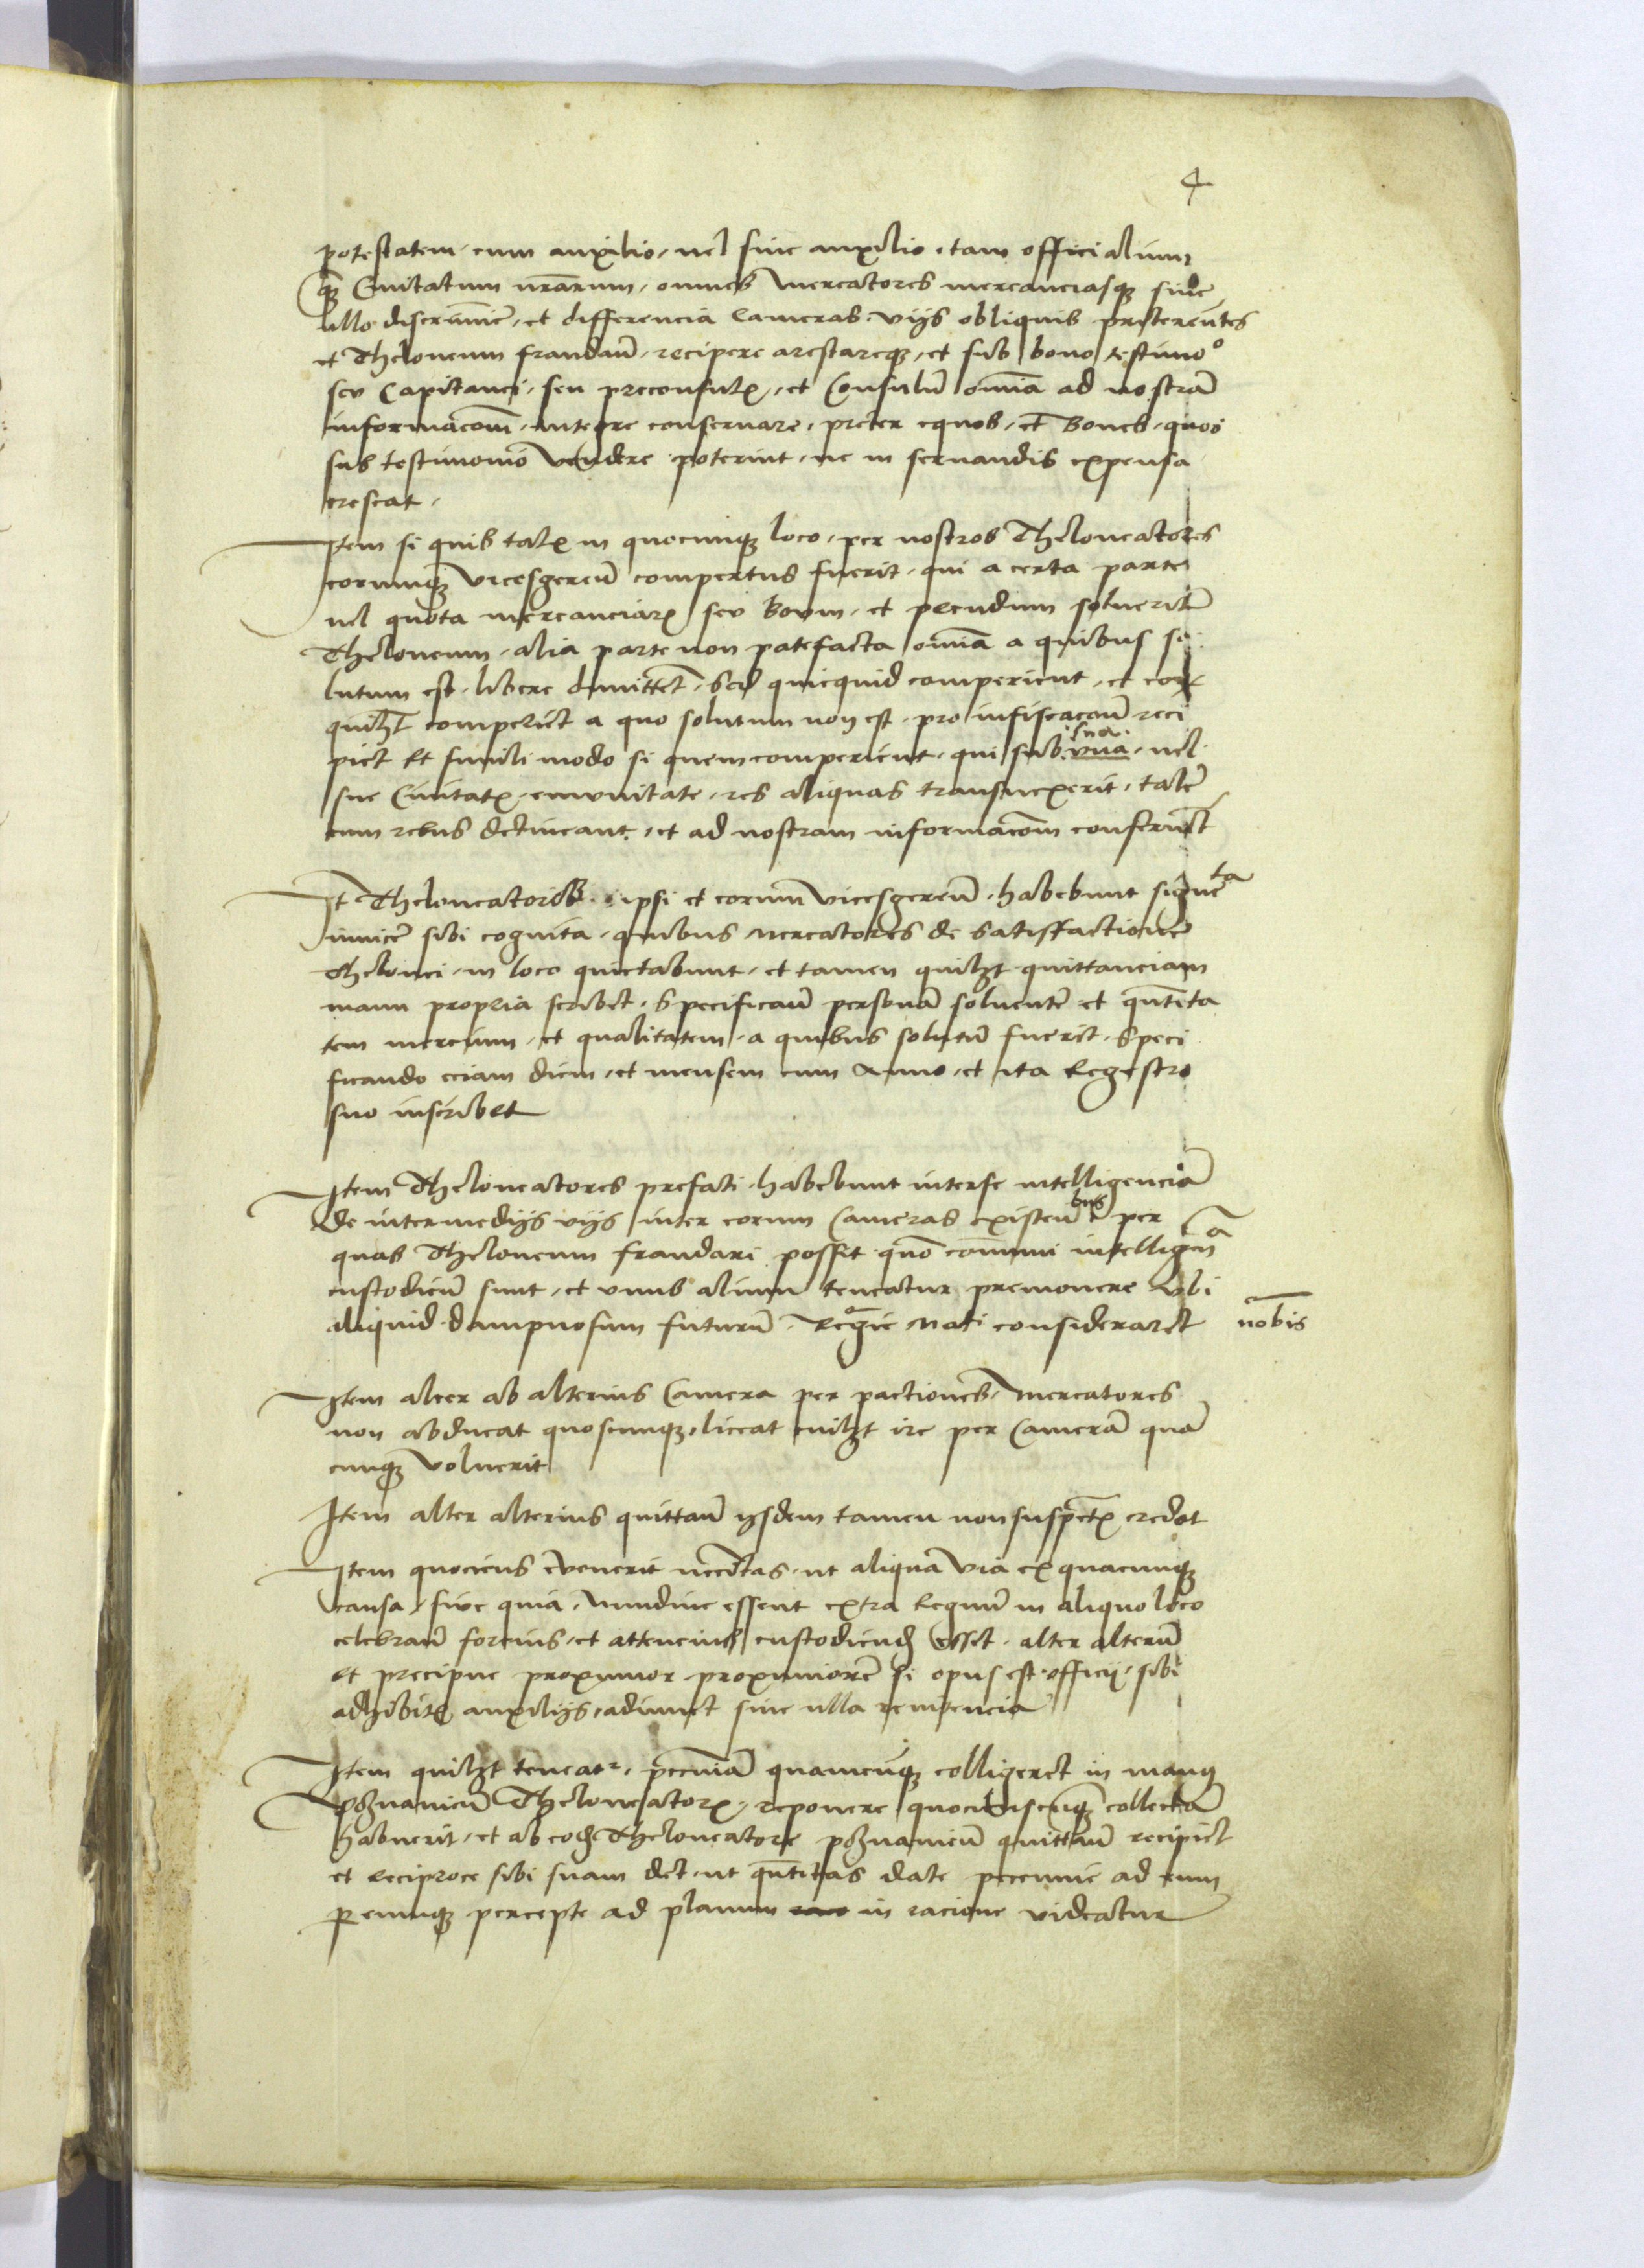 4
potestatem, cum auxilio, uel sine auxilio, tam officialium
q̃ Ciuitatum nr̄arum, omnes Mercatores mercanciasq̨ sine
ullo discrimine, et differencia Cameras vijs obliquis pretereuntes
et Theloneum fraudan̄, recipere arestareq̨, et sub bono testimo°
seu Capitanei, seu preconsulꝫ, et Consulū om̄ia ad nostrā
informacōm, integre conseruare, preter equos, et Boues, quos
sub testimonio vendere poterint, ne in seruandis expensa
crescat,
Item si quis talꝫ in quocunq̨ loco, per nostros Theloneatores
eorumq̨ vicesgeren̄ compertus fuerit, qui a certa parte
uel quota mercanciarꝫ seu Boum, et pecudum soluerit
Theloneum, alia parte non patefacta om̄ia a quibus so
lutum est, libere dimittet, Sed quicquid comperient, et eorꝫ
quilꝫt comperiet a quo solutum non est, pro infiscacōn reci
piet Et simili modo si quem comperient, qui sub vna sua uel
sue Ciuitatꝫ emunitate, res aliquas transuexerit, talē
cum rebus detineant, et ad nostram informacōm conseruēt
It̄ Theloneatores ipsi et eorum vicesgeren̄, habebunt signeta
inuicē sibi cognita, quibus Mercatores de Satisfactione
Thelonei, in loco quietabunt, et tamen quilꝫt quittanciam
manu propria scribet, Specifican̄ personā soluentē et qn̄tita
tem mercium, et qualitatem, a quibus solutū fuerit, Speci
ficando eciam diem, et mensem cum Anno, et ita Regestro
suo inscribet
Item Theloneatores prefati habebunt interse intelligenciā
de intermedijs vijs inter eorum Cameras existen̄bus per
quas Theloneum fraudari possit quō communi intelligen̄a
custodien̄ sunt, et vnus alium teneatur premonere Vbi
aliquid dampnosum futurū Regie Mati consideraret nobis
Item alter ab alterius Camera per pactiones, Mercatores
non abducat quoscunq̨, liceat cuilꝫt ire per Camerā quā
cunq̨ voluerit
Item alter alterius quittan̄ ijsdem tamen non suspectꝫ credat
Item quociens euenerit necc̄itas, ut aliqua via ex quacunq̨
causa, siue quia, Nundine essent extra Regnū in aliquo loco
celebran̄ forcius, et attencius custodiend̨ esset, alter alterū
et precipue proximior proximiorē si opus est officij sibi
adhibitꝫ auxilijs, adiuuet sine ulla renitencia
Item quilꝫt teneatᵣ, pecc̄niā quamcūq̨ colligeret in manꝰ
poznanien̄ Theloneatorꝫ, reponere quocienscūq̨ collectā
habuerit, et ab eod̨ Theloneatore poznanien̄ quittan̄ recipiet
et Reciproce sibi suam det ut qn̄titas date pecunie ad eum
p̱ eumq̨ percepte ad planum in racione videatur